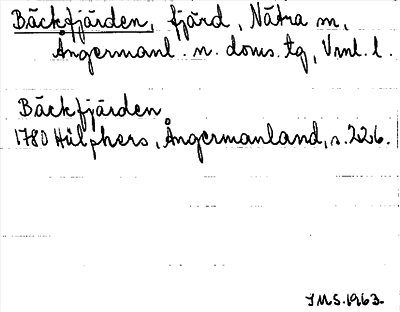 Bäckfjärden, fjärd, Nätra sn,
Ångermanl. n. doms. tg, Vrnl. l.
Bäckfjärden
1780 Hülphers, Ångermanland, s. 226.
IMS. 1963.